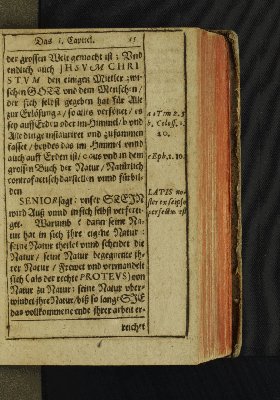 Das 1. Capitel. 15
der grossen Welt gemacht ist; Vnd
endlich auch JHSVM CHRI
STVM den einigen Mittler zwi-
schen GOTT vnd dem Menschen /
der sich selbst gegeben hat für Alle
zur Erlösung a / so alles versönet / es
sey auff Erden oder im Himmel b vnd
Alle dinge instauriret vnd zusammen
fasset / beydes das im Himmel vnnd
auch auff Erden ist / c aus vnd in dem
grossen Buch der Natur / Natürlich
contrafactisch darstellen vnnd fürbil-
den
SENIOR sagt: vnser STEIN
wird Auß vnnd in sich selbst verferti-
get. Warumb? dann seine Na-
tur hat in sich ihre eigne Natur:
seine Natur theilet vnnd scheidet die
Natur / seine Natur begegnete ih-
rer Natur / Frewet vnd verwandelt
sich (als der rechte PROTEVS) von
Natur zu Natur: seine Natur vber-
windet ihre Natur / biß so lange SIE
das vollkommene ende ihrer arbeit er-
reichet
a 1 Tim 2. 5
b, Coloss. 1.
20.
c Eph. 1. 10.
LATIS no-
ster in seipso
perfectus est